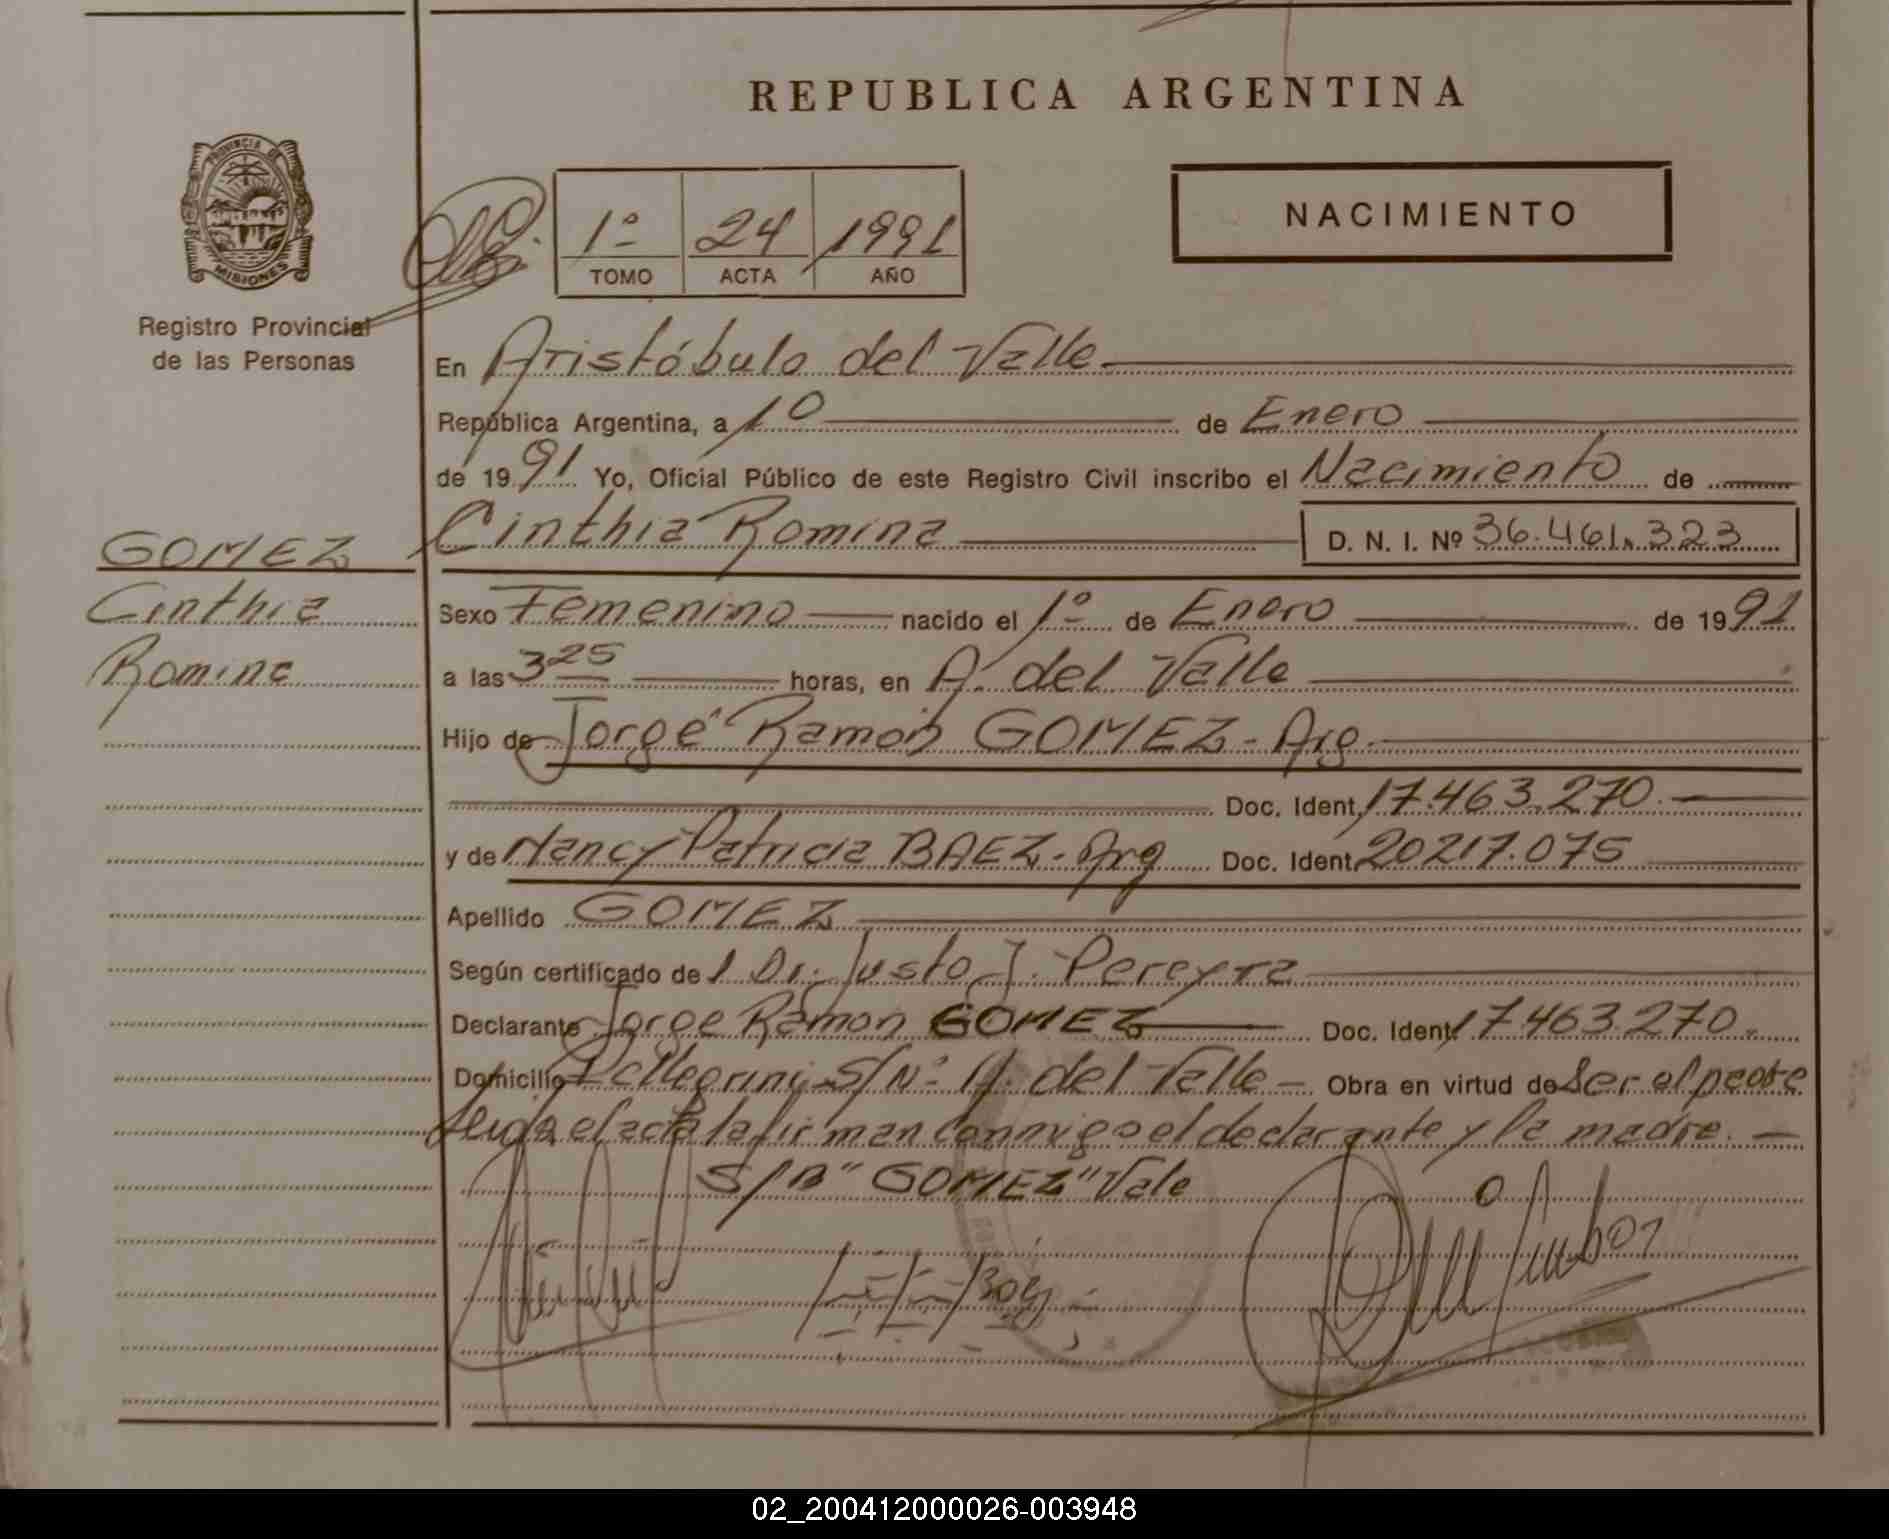 REPUBLICA ARGENTINA
PROVINCIA DE
MISIONES
Registro Provincial
de las Personas
1º 24 1991
TOMO ACTA AÑO
NACIMIENTO
En Aristóbulo del Valle
República Argentina, a 10 de Enero
de 1991 Yo, Oficial Público de este Registro Civil inscribo el Nacimiento de
Cinthia Romina D. N. I. Nº 36.461.323
GOMEZ
Cinthia
Romina
Sexo Femenino nacido el 1º de Enero de 1991
a las 3 25 horas, en A. del Valle
Hijo de Jorge Ramón GOMEZ - Arg.
Doc. Ident. 17.463.270.
y de Nancy Patricia BAEZ - Arg Doc. Ident. 20217.075
Apellido GOMEZ
Según certificado de l Dr. Justo J. Pereyra
Declarante Jorge Ramon GOMEZ Doc. Ident. 17463.270.
Domicilio Pellegrini S/Nº A. del Valle - Obra en virtud de Ser el padre
el acta la firman conmigo el declarante y la madre. -
S/B "GOMEZ" Vale
02_200412000026-003948